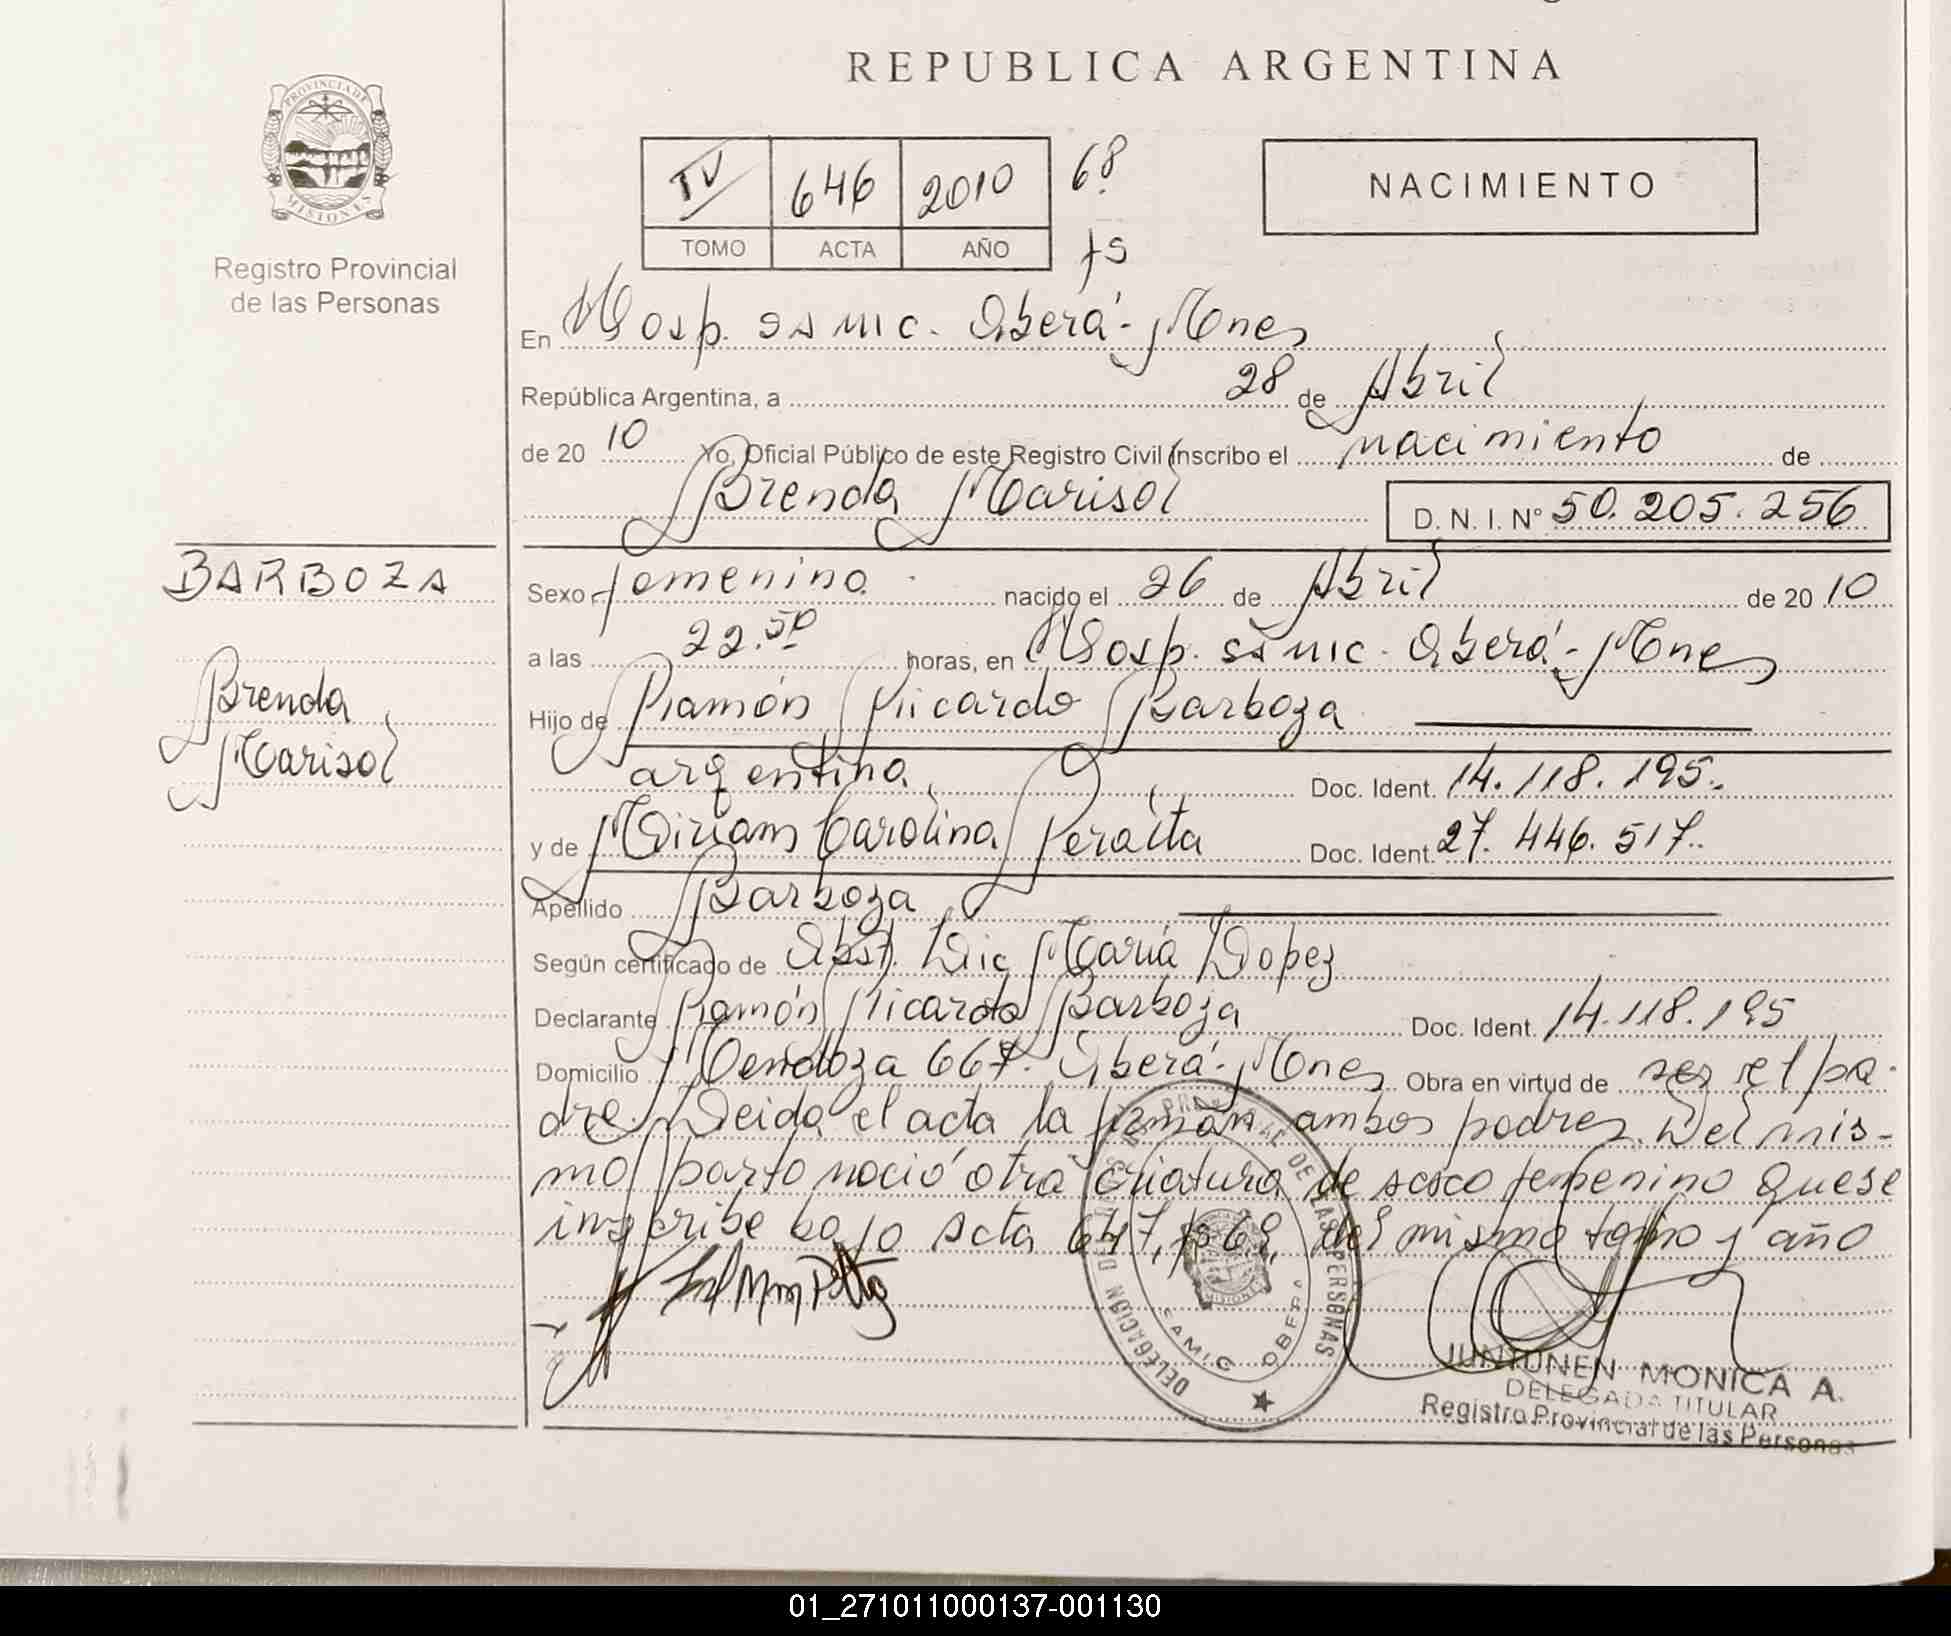 REPUBLICA ARGENTINA
PROVINCIA DE
MISIONES
Registro Provincial
de las Personas
IV 646 2010 68
TOMO ACTA AÑO fs
NACIMIENTO
En Hosp. SAMIC. Oberá - Mnes
República Argentina, a 28 de Abril
de 20 10 Yo, Oficial Público de este Registro Civil inscribo el nacimiento de
Brenda Marisol D. N. I. N° 50.205.256
BARBOZA
Brenda
Marisol
Sexo femenino nacido el 26 de Abril de 20 10
a las 22.50 horas, en Hosp. SAMIC. Oberá - Mnes
Hijo de Ramón Ricardo Barboza
argentina Doc. Ident. 14.118.195.
y de Miriam Carolina Peralta Doc. Ident. 27.446.517.
Apellido Barboza
Según certificado de Obst. Lic María Lopez
Declarante Ramón Ricardo Barboza Doc. Ident. 14.118.195
Domicilio Mendoza 667. Oberá - Mnes Obra en virtud de ser el pa-
dre. Leida el acta la firman ambos padres. Del mis-
mo parto nació otra criatura de sexo femenino que se
inscribe bajo acta 647, fs 69, del mismo tomo y año
DELEGACION DE PERSONAS
SAMIC OBERA
JUNTUNEN MONICA A.
DELEGADA TITULAR
Registro Provincial de las Personas
01_271011000137-001130